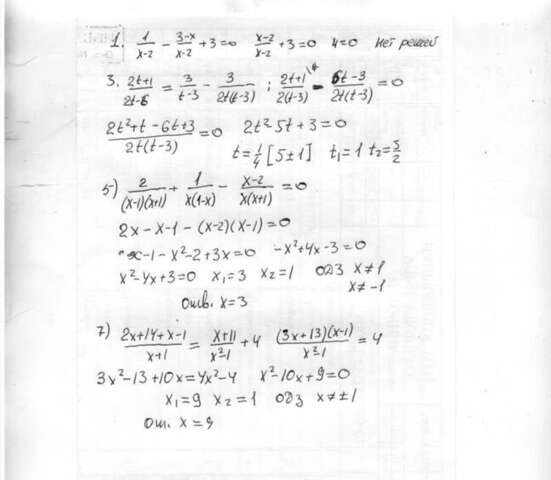 1. 1/(x-2) - (3-x)/(x-2) + 3 = 0   (x-2)/(x-2) + 3 = 0   4 = 0   Нет решей
3. (2t+1)/(2t-6) = 3/(t-3) - 3/(2t(t-3)) ; (2t+1)/(2(t-3)) - (6t-3)/(2t(t-3)) = 0
(2t²+t-6t+3)/(2t(t-3)) = 0   2t²-5t+3=0
t=1/4 [5±1]   t₁=1 t₂=5/2
5) 2/((x-1)(x+1)) + 1/(x(1-x)) - (x-2)/(x(x+1)) = 0
2x-x-1-(x-2)(x-1)=0
x-1-x²-2+3x=0   -x²+4x-3=0
x²-4x+3=0   x₁=3   x₂=1   одз x≠1
x≠-1
Отв. x=3
7) (2x+14+x-1)/(x+1) = (x+11)/(x²-1) + 4   ((3x+13)(x-1))/(x²-1) = 4
3x²-13+10x=4x²-4   x²-10x+9=0
x₁=9 x₂=1   одз x≠±1
От. x=9